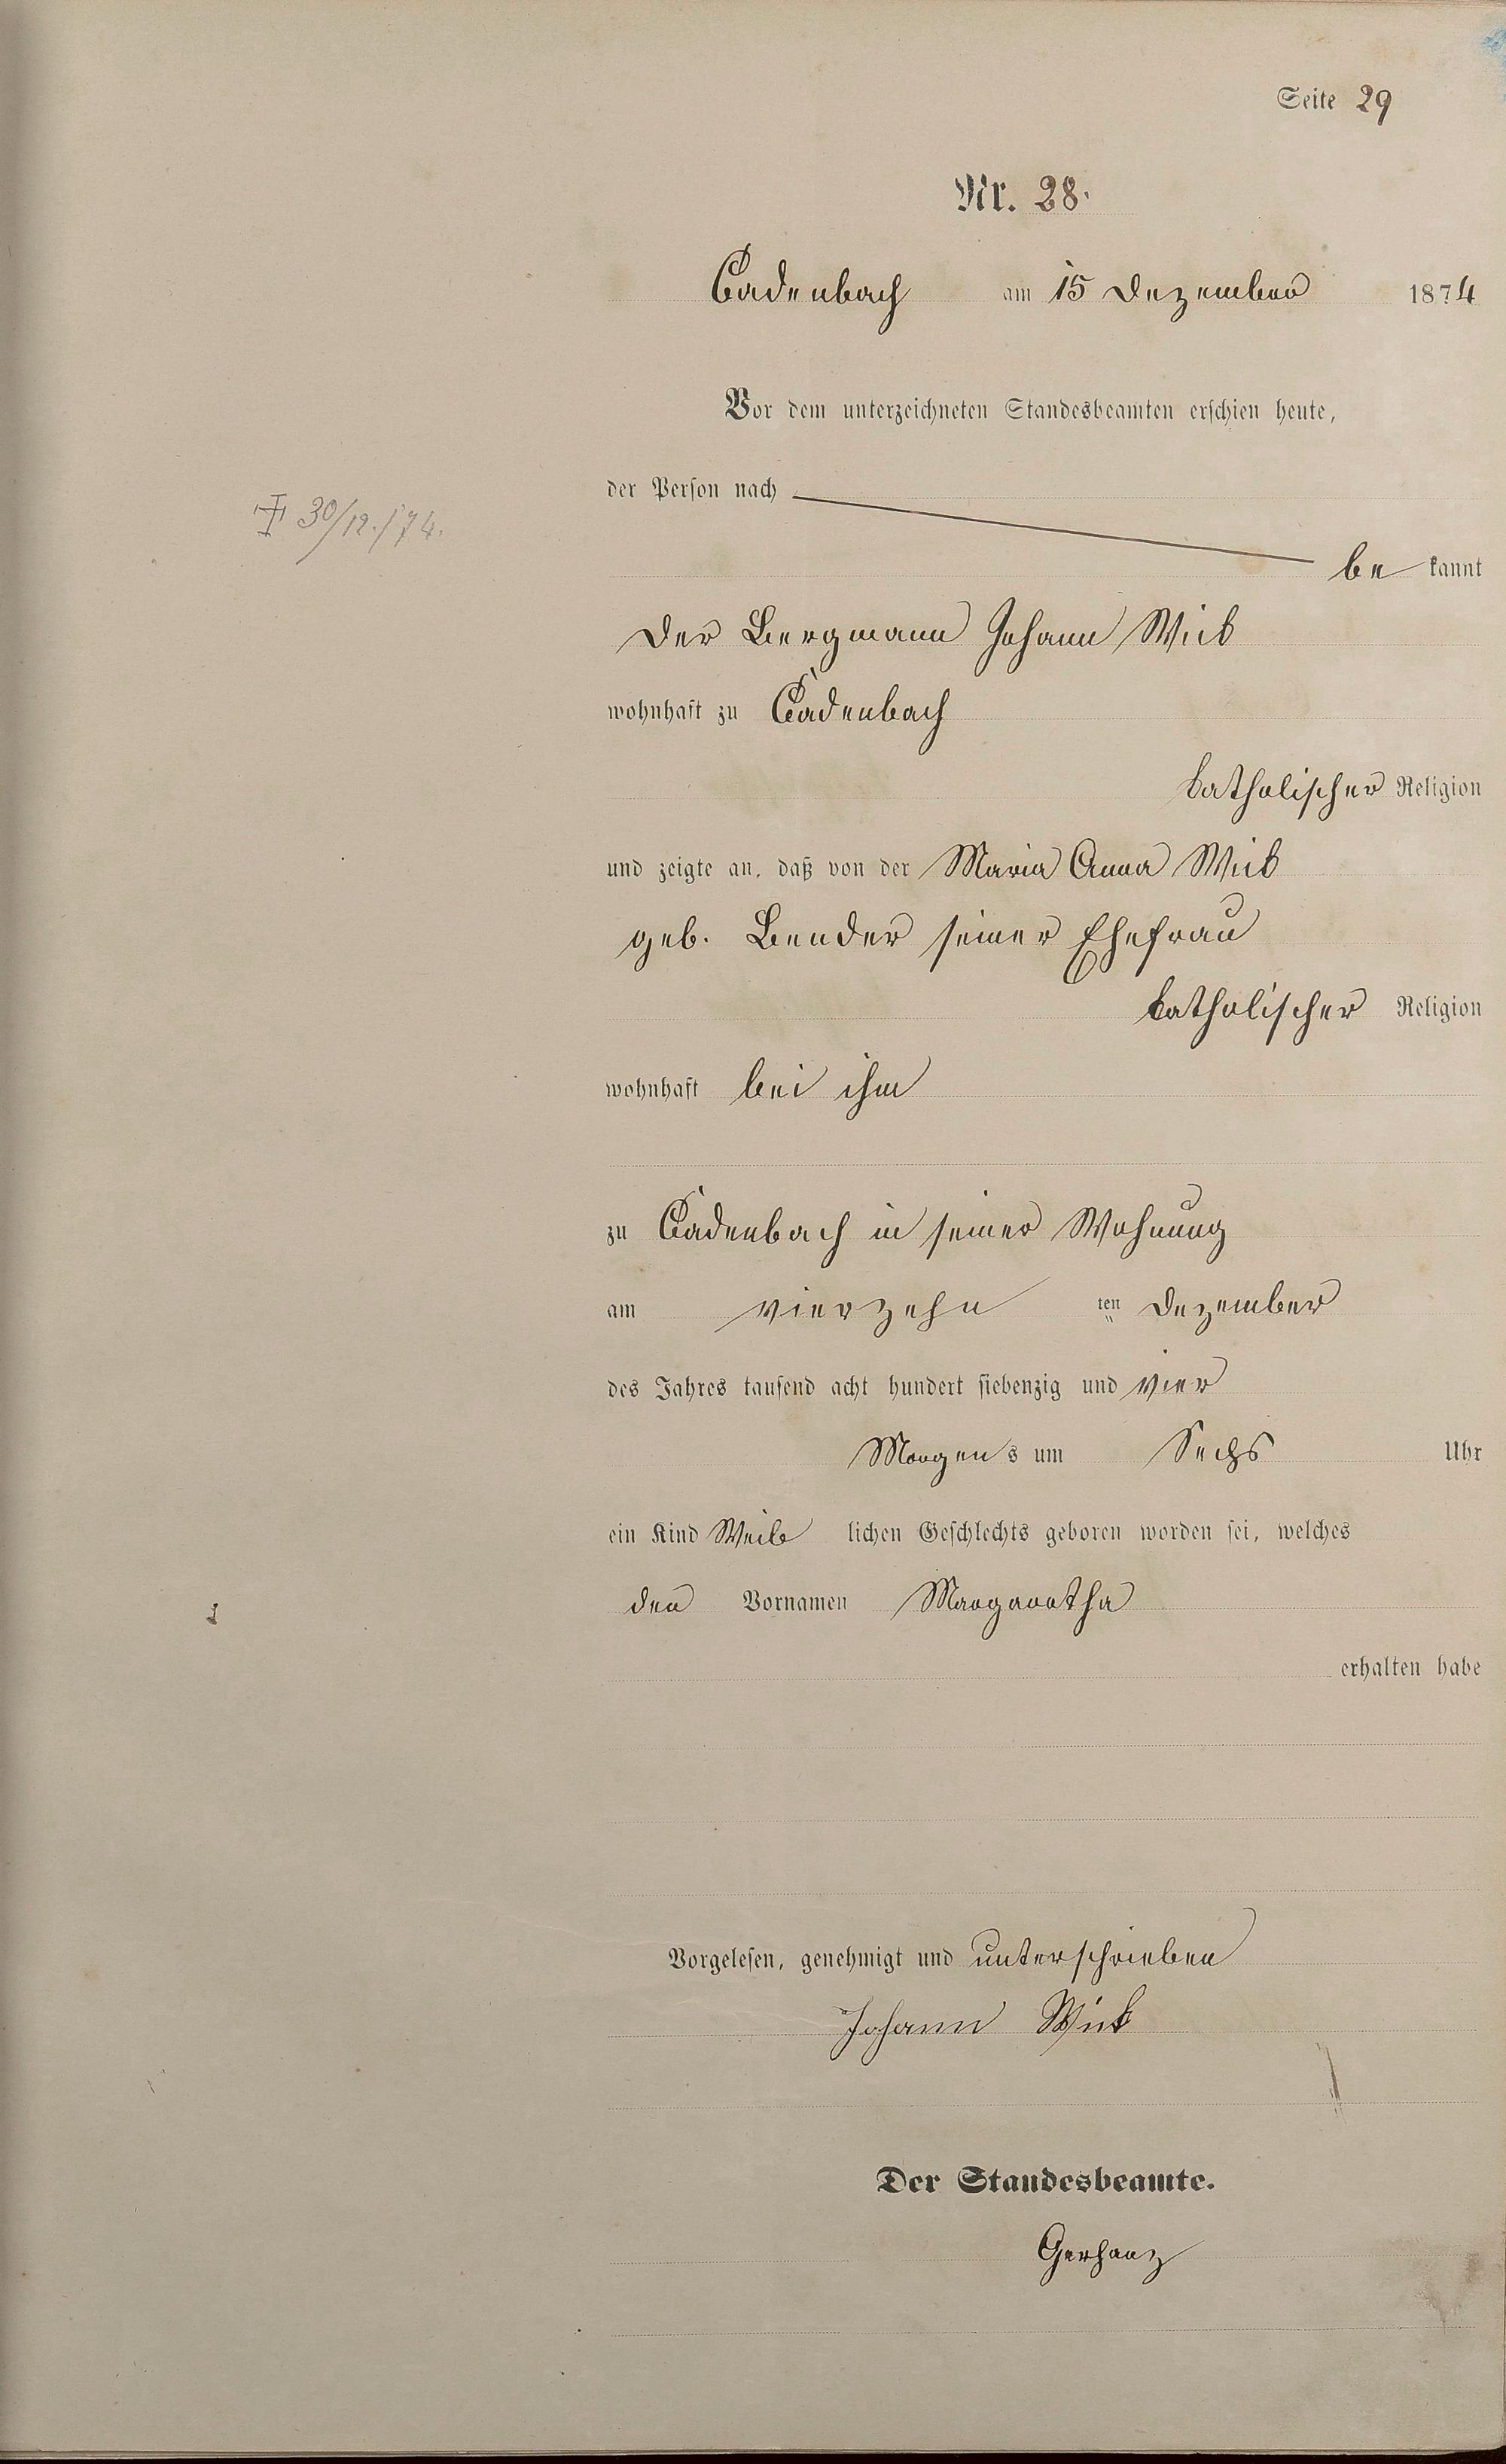 Seite 29
Nr. 28.
Cadenbach am 15 Dezember 1874
Vor dem unterzeichneten Standesbeamten erschien heute,
der Person nach
be kannt
† 30/12./74.
Der Bergmann Johann Wick
wohnhaft zu Cadenbach
katholischer Religion
und zeigte an, daß von der Maria Anna Wick
geb. Bender seiner Ehefrau
katholischer Religion
wohnhaft bei ihm
zu Cadenbach in seiner Wohnung
am vierzehn ten Dezember
des Jahres tausend acht hundert siebenzig und vier
Morgens um Sechs Uhr
ein Kind Weib lichen Geschlechts geboren worden sei, welches
den Vornamen Margaretha
erhalten habe
Vorgelesen, genehmigt und unterschrieben
Johann Wick
Der Standesbeamte.
Gerharz